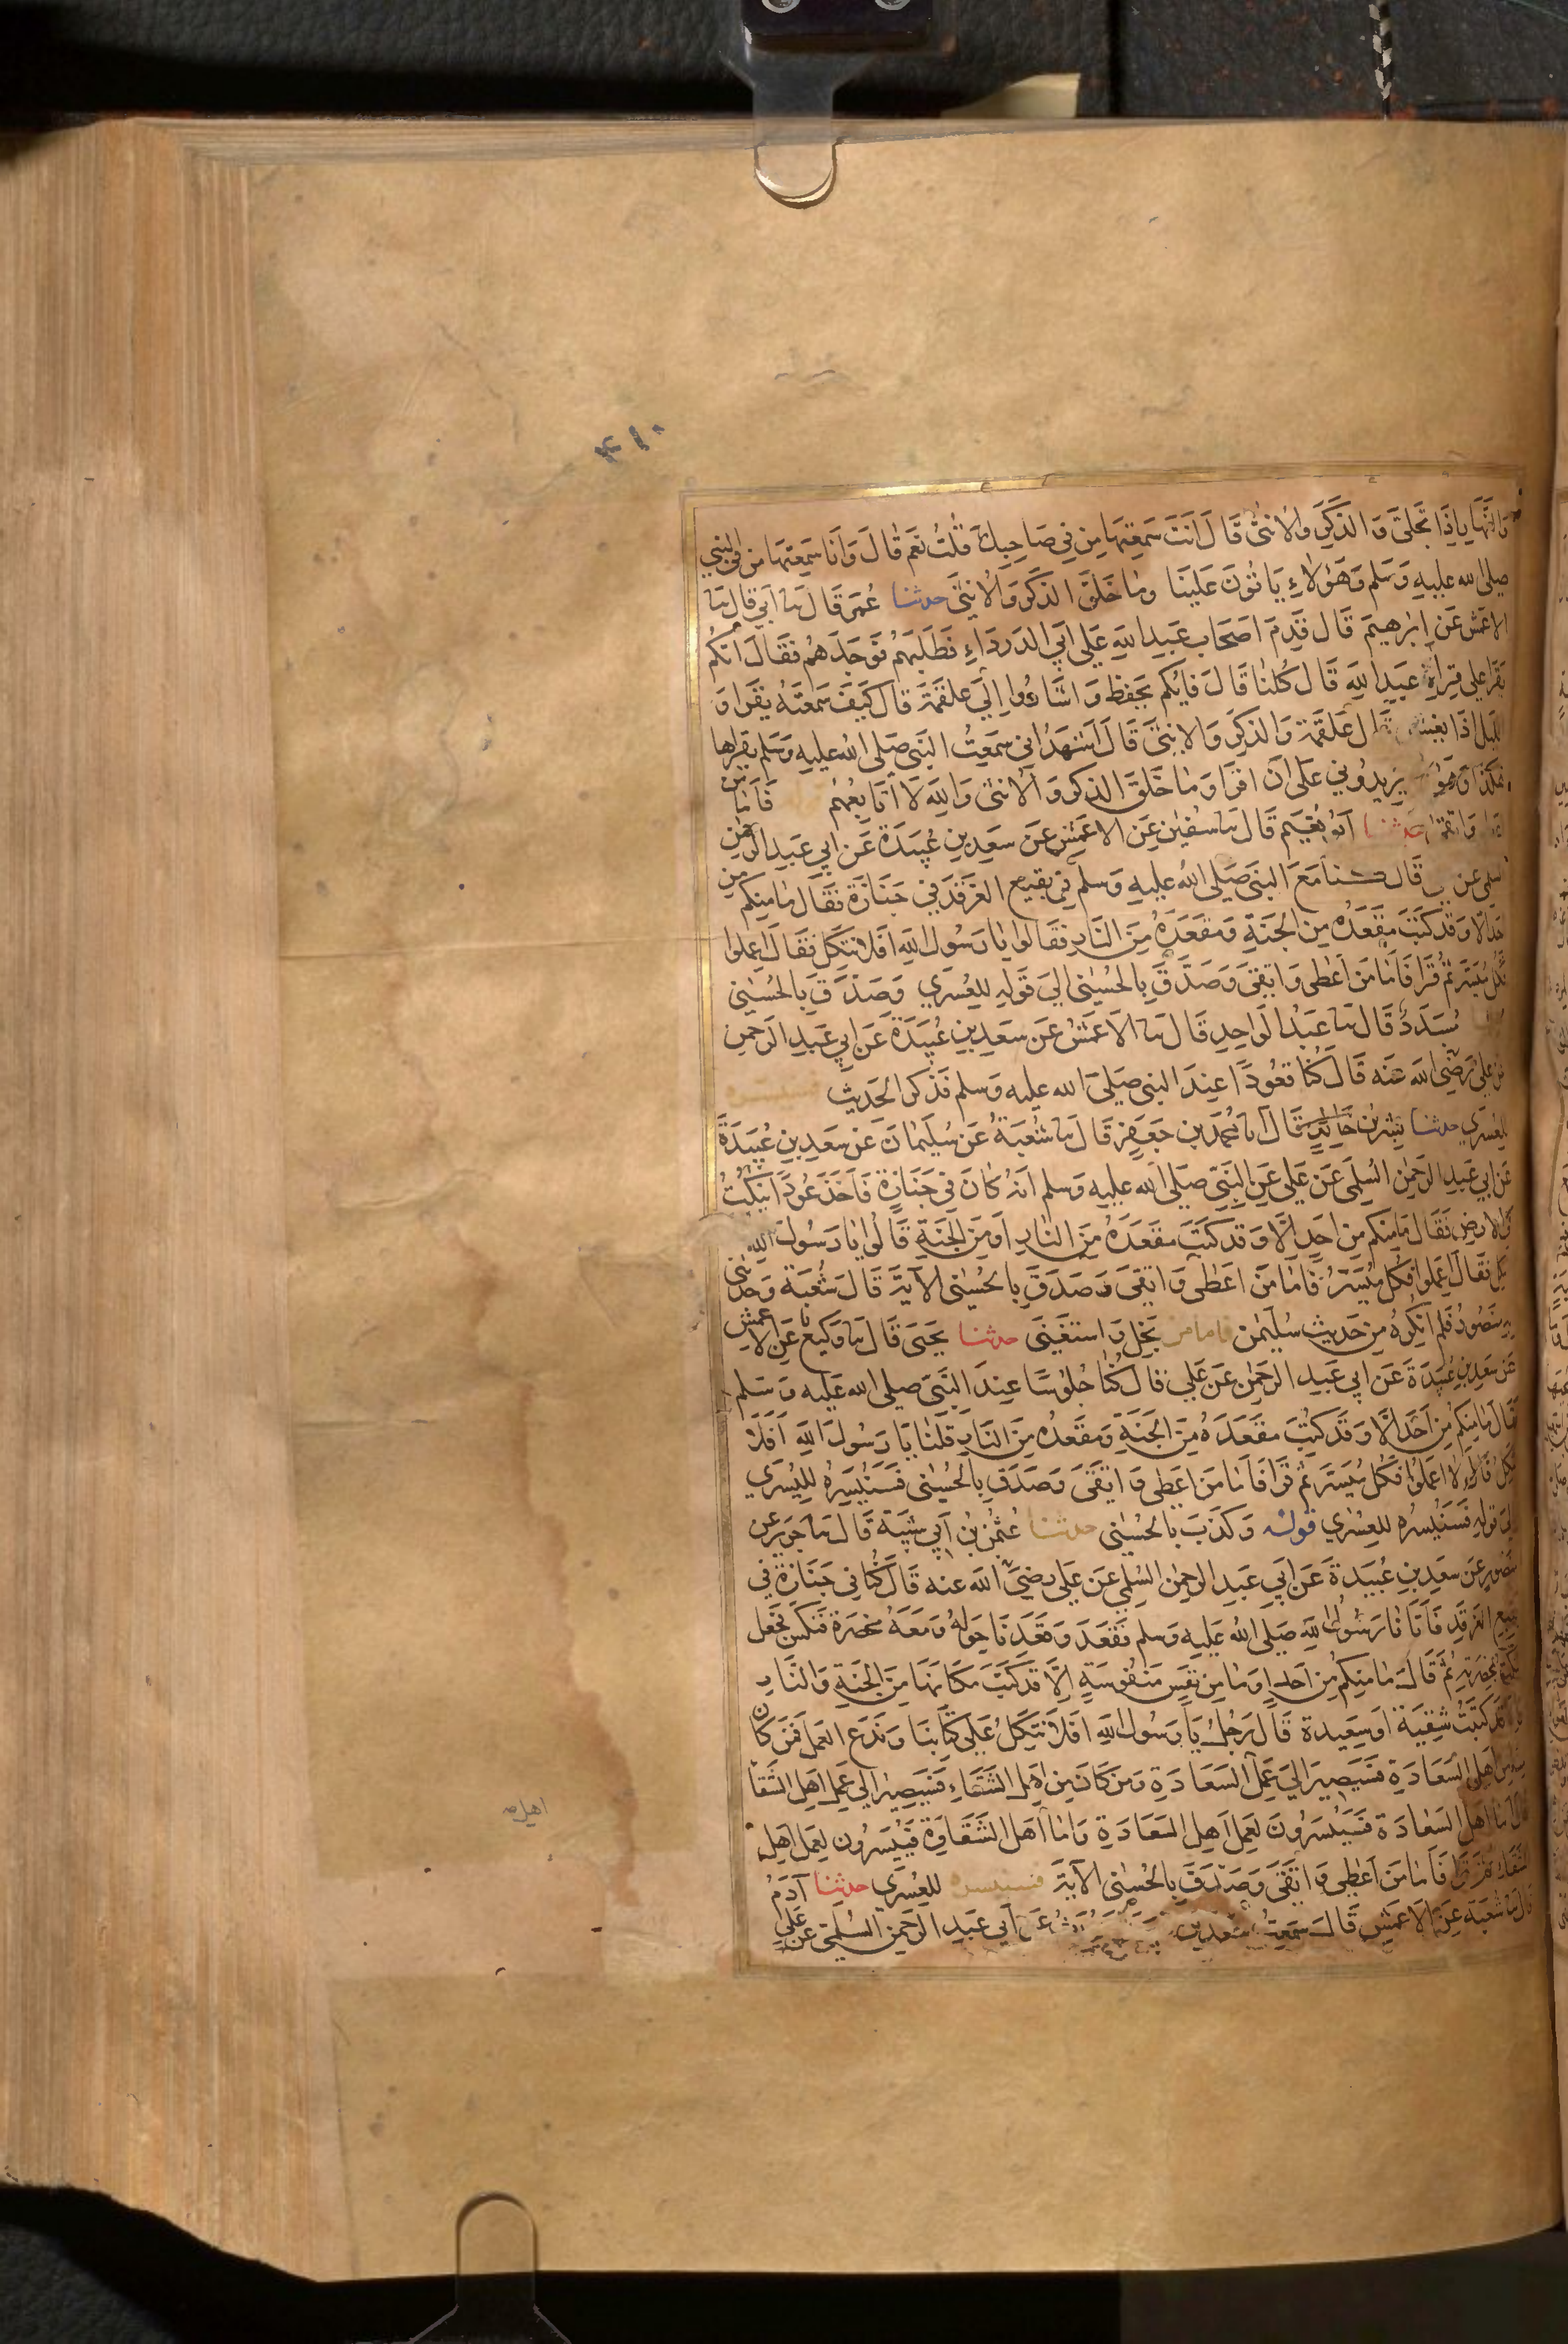 ٤١٠
وَالنَّهَارِ اِذَا تَجَلَّى وَالذَّكَرِ وَالأُنْثَى قَالَ اَنْتَ سَمِعْتَهَا مِنْ فِي صَاحِبِكَ قُلْتُ نَعَمْ قَالَ وَاَنَا سَمِعْتُهَا مِنْ فِي النبي
صلى الله عليه وَسَلم وَهَؤُلاَءِ يَابَوْنَ عَلَيْنَا وَمَا خَلَقَ الذَّكَرَ وَالأُنْثَى حدثنا عُمَر قَالَ نا اَبي قال نا
الاَعْمَش عَنْ اِبْرٰهِيمَ قَالَ قَدِمَ اَصْحَابُ عَبْدِ اللهِ عَلَى اَبِي الدَرْدَاءِ فَطَلَبَهُمْ فَوَجَدَهُمْ فَقَالَ اَيُّكُم
يَقْرَأُ على قِرَاةِ عَبْدِ اللهِ قَالَ كُلُّنَا قَالَ فَاَيُّكُم يَحْفَظُ وَاَشَارُوا اِلَى عَلْقَمَةَ قَالَ كَيْفَ سَمِعْتَهُ يَقْرَا وَ
اللَّيْلِ اِذَا يَغْشَى قَالَ عَلْقَمَة وَالذَكَرِ وَالاُنْثَى قَالَ اَشْهَدُ اَنِّي سَمِعْتُ النَبِيَّ صَلى الله عليه وَسَلم يَقْرَاُهَا
هٰكَذَا وَهَؤُلاَءِ يُرِيدُونِي عَلَى اَنْ اَقْرَا وَمَا خَلَقَ الذَكَرَ وَالاُنْثَى وَاللهِ لاَ اُتَابِعُهُمْ فَاَمَّا مَن
اَعْطَى وَاتَّقَى حدثنا اَبُو نُعَيْمٍ قَالَ نا سُفْيٰن عَنِ الاَعْمَشِ عَنْ سَعْدِ بْنِ عُبَيْدَةَ عَنْ اَبِي عَبْدِ الرَحْمٰنِ
السلمى عَنْ قَالَ كُنَّا مَعَ النَبِيَّ صَلى الله عليه وَسَلم فِي بَقِيعِ الغَرْقَدِ فِي جَنَازَةٍ فَقَالَ مَا مِنكُم مِنْ
اَحَدٍ اِلَّا وَقَدْ كُتِبَ مَقْعَدُهُ مِنَ الجَنَّةِ وَمَقْعَدُهُ مِنَ النَّارِ فَقَالُوا يَا رَسُولَ اللهِ اَفَلاَ نَتَّكِلُ فَقَالَ اِعْمَلُوا
فَكُلٌّ مُيَسَّرٌ ثُمَّ قَرَا فَاَمَّا مَنْ اَعْطَى وَاتَّقَى وَصَدَّقَ بِالحُسْنَى اِلَى قَوْلِهِ لِلعُسْرَى وَصَدَّقَ بِالحُسْنَى
مُسَدَّدٌ قَالَ نا عَبْدُ الوَاحِدِ قَالَ نا الاَعْمَشُ عَنْ سَعْدِ بْنِ عُبَيْدَةَ عَنْ اَبِي عَبْدِ الرَحْمٰنِ
عَنْ عَلِيٍّ رَضِيَ الله عَنْه قَالَ كُنَّا قُعُودًا عِنْدَ النبي صَلَى الله عليه وَسلم فَذَكَرَ الحَدِيثَ فسنيسره
لليُسْرَى حدثنا بِشْرُ بْن خَالِدٍ قَالَ نا مُحَمَّد بْن جَعْفَرٍ قَالَ نا شُعْبَةُ عَنْ سُلَيْمَانَ عَنْ سَعْدِ بْنِ عُبَيْدَةَ
عَنْ اَبِي عَبْدِ الرَحْمٰنِ السُلَمِيِّ عَنْ عَلِيٍّ عَنِ النَبِيِّ صَلى الله عليه وَسلم اَنَّهُ كَانَ فِي جَنَازَةٍ فَاَخَذَ عُودًا يَنْكُتُ
فِي الاَرْضِ فَقَالَ مَا مِنكُم مِنْ اَحَدٍ اِلَّا وَقَدْ كُتِبَ مَقْعَدُهُ مِنَ النَّارِ اَوْ مِنَ الجَنَّةِ قَالُوا يَا رَسُولَ الله
نَتَّكِلُ فَقَالَ اِعْمَلُوا فَكُلٌّ مُيَسَّرٌ فَاَمَّا مَنْ اَعْطَى وَاتَّقَى وَصَدَّقَ بِالحُسْنَى الآيَةَ قَالَ شُعْبَة وَحَدثني
بِه مَنْصُورٌ فَلَم اُنْكِرْهُ مِنْ حَدِيثِ سُلَيْمٰن فاما من بَخِلَ وَاسْتَغْنَى حدثنا يَحْيَى قَالَ نا وَكِيع عَنِ الاعمش
عَنْ سَعْدِ بْنِ عُبَيْدَةَ عَنْ اَبِي عَبْدِ الرَحْمٰن عَنْ عَلِيٍّ قَالَ كُنَّا جُلُوسًا عِنْدَ النَبِيِّ صلى الله عَلَيه وَسَلم
فَقَالَ مَا مِنكُم مِنْ اَحَدٍ اِلَّا وَقَدْ كُتِبَ مَقْعَدُهُ مِنَ الجَنَّةِ وَمَقْعَدُهُ مِنَ النَّارِ قُلْنَا يَا رَسُولَ اللهِ اَفَلاَ
نَتَّكِلُ قَالَ لاَ اِعْمَلُوا فَكُلٌّ مُيَسَّرٌ ثُمَّ قَرَا فَاَمَّا مَنْ اَعْطَى وَاتَّقَى وَصَدَّقَ بِالحُسْنَى فَسَنُيَسِّرُهُ لِليُسْرَى
اِلَى قَوْلِهِ فَسَنُيَسِّرُهُ لِلعُسْرَى قوله وَكَذَّبَ بِالحُسْنَى حدثنا عُثْمٰن بْن اَبِي شَيْبَةَ قَالَ نا جَرِير عَنْ
مَنْصُورٍ عَنْ سَعْدِ بْنِ عُبَيْدَةَ عَنْ اَبِي عَبْدِ الرَحْمٰن السُلَمِي عَنْ عَلِي رَضِيَ الله عَنه قَالَ كُنَّا فِي جَنَازَةٍ فِي
بَقِيعِ الغَرْقَدِ فَاَتَانَا رَسُولُ اللهِ صَلى الله عَلَيه وَسلم فَقَعَدَ وَقَعَدْنَا حَوْلَهُ وَمَعَهُ مِخْصَرَةٌ فَنَكَّسَ فَجَعَلَ
يَنْكُتُ بِمِخْصَرَتِهِ ثُمَّ قَالَ مَا مِنكُم مِنْ اَحَدٍ اَوْ مَا مِنْ نَفْسٍ مَنْفُوسَةٍ اِلَّا قَدْ كُتِبَ مَكَانُهَا مِنَ الجَنَّةِ وَالنَّارِ
وَاِلَّا قَدْ كُتِبَتْ شَقِيَّة اَوْ سَعِيدة قَالَ رَجُلٌ يَا رَسُولَ اللهِ اَفَلاَ نَتَّكِلُ عَلَى كِتَابِنَا وَنَدَعُ العَمَلَ فَمَنْ كَانَ
مِنَّا مِنْ اَهْلِ السَّعَادَةِ فَسَيَصِيرُ اِلَى عَمَلِ السَّعَادَةِ وَمَنْ كَانَ مِنْ اَهْلِ الشَقَاءِ فَسَيَصِيرُ اِلَى عَمَلِ اَهْلِ الشَقَا
قَالَ اَمَّا اَهْلُ السَعَادَة فَسَيُيَسَّرُونَ لِعَمَلِ اَهْلِ السَعَادَةِ وَاَمَّا اَهْل الشَقَاوَةِ فَيُيَسَّرُون لِعَمَلِ اَهْلِ
الشَقَاء ثُمَّ قَرَا فَاَمَّا مَنْ اَعْطَى وَاتَّقَى وَصَدَّقَ بِالحُسْنَى الآيَةَ فسنيسره لِلعُسْرَى حدثنا آدَمُ
قَالَ نا شُعْبَة عَنِ الاَعْمَشِ قَالَ سَمِعْتُ سَعْد بْن عَنْ اَبِي عَبْدِ الرَحْمٰن السُلَمِي عَنْ عَلِي
اهل صـ